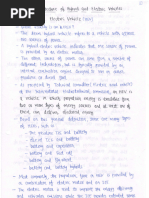 Architecture of Hybrid and Electric Vehicles
Electric Vehicle (HEV)
The term hybrid vehicle refers to a vehicle with atleast
two sources of power.
A hybrid-electric vehicle indicates that one source of power
is provided by an electric motor.
The other source of motive power can come from a number
of different technologies, but is typically provided by an
internal combustion engine designed to run on either
gasoline or diesel fuel.
As proposed by Technical committee (Electric Road
A vehicle in which propulsion energy is available from
two or more types of energy sources and at least one of
them can deliver electrical energy.
Based on this general definition, there are many types
of HEVs, such as:
The gasoline ICE and battery
Diesel ICE and battery
Battery and fuel cell
Battery and capacitor
Battery and flywheel
Battery and battery hybrids.
Most commonly, the propulsion force in HEV is provided
by a combination of electric motor and an ICE.
The electric motor is used to improve the energy efficiency